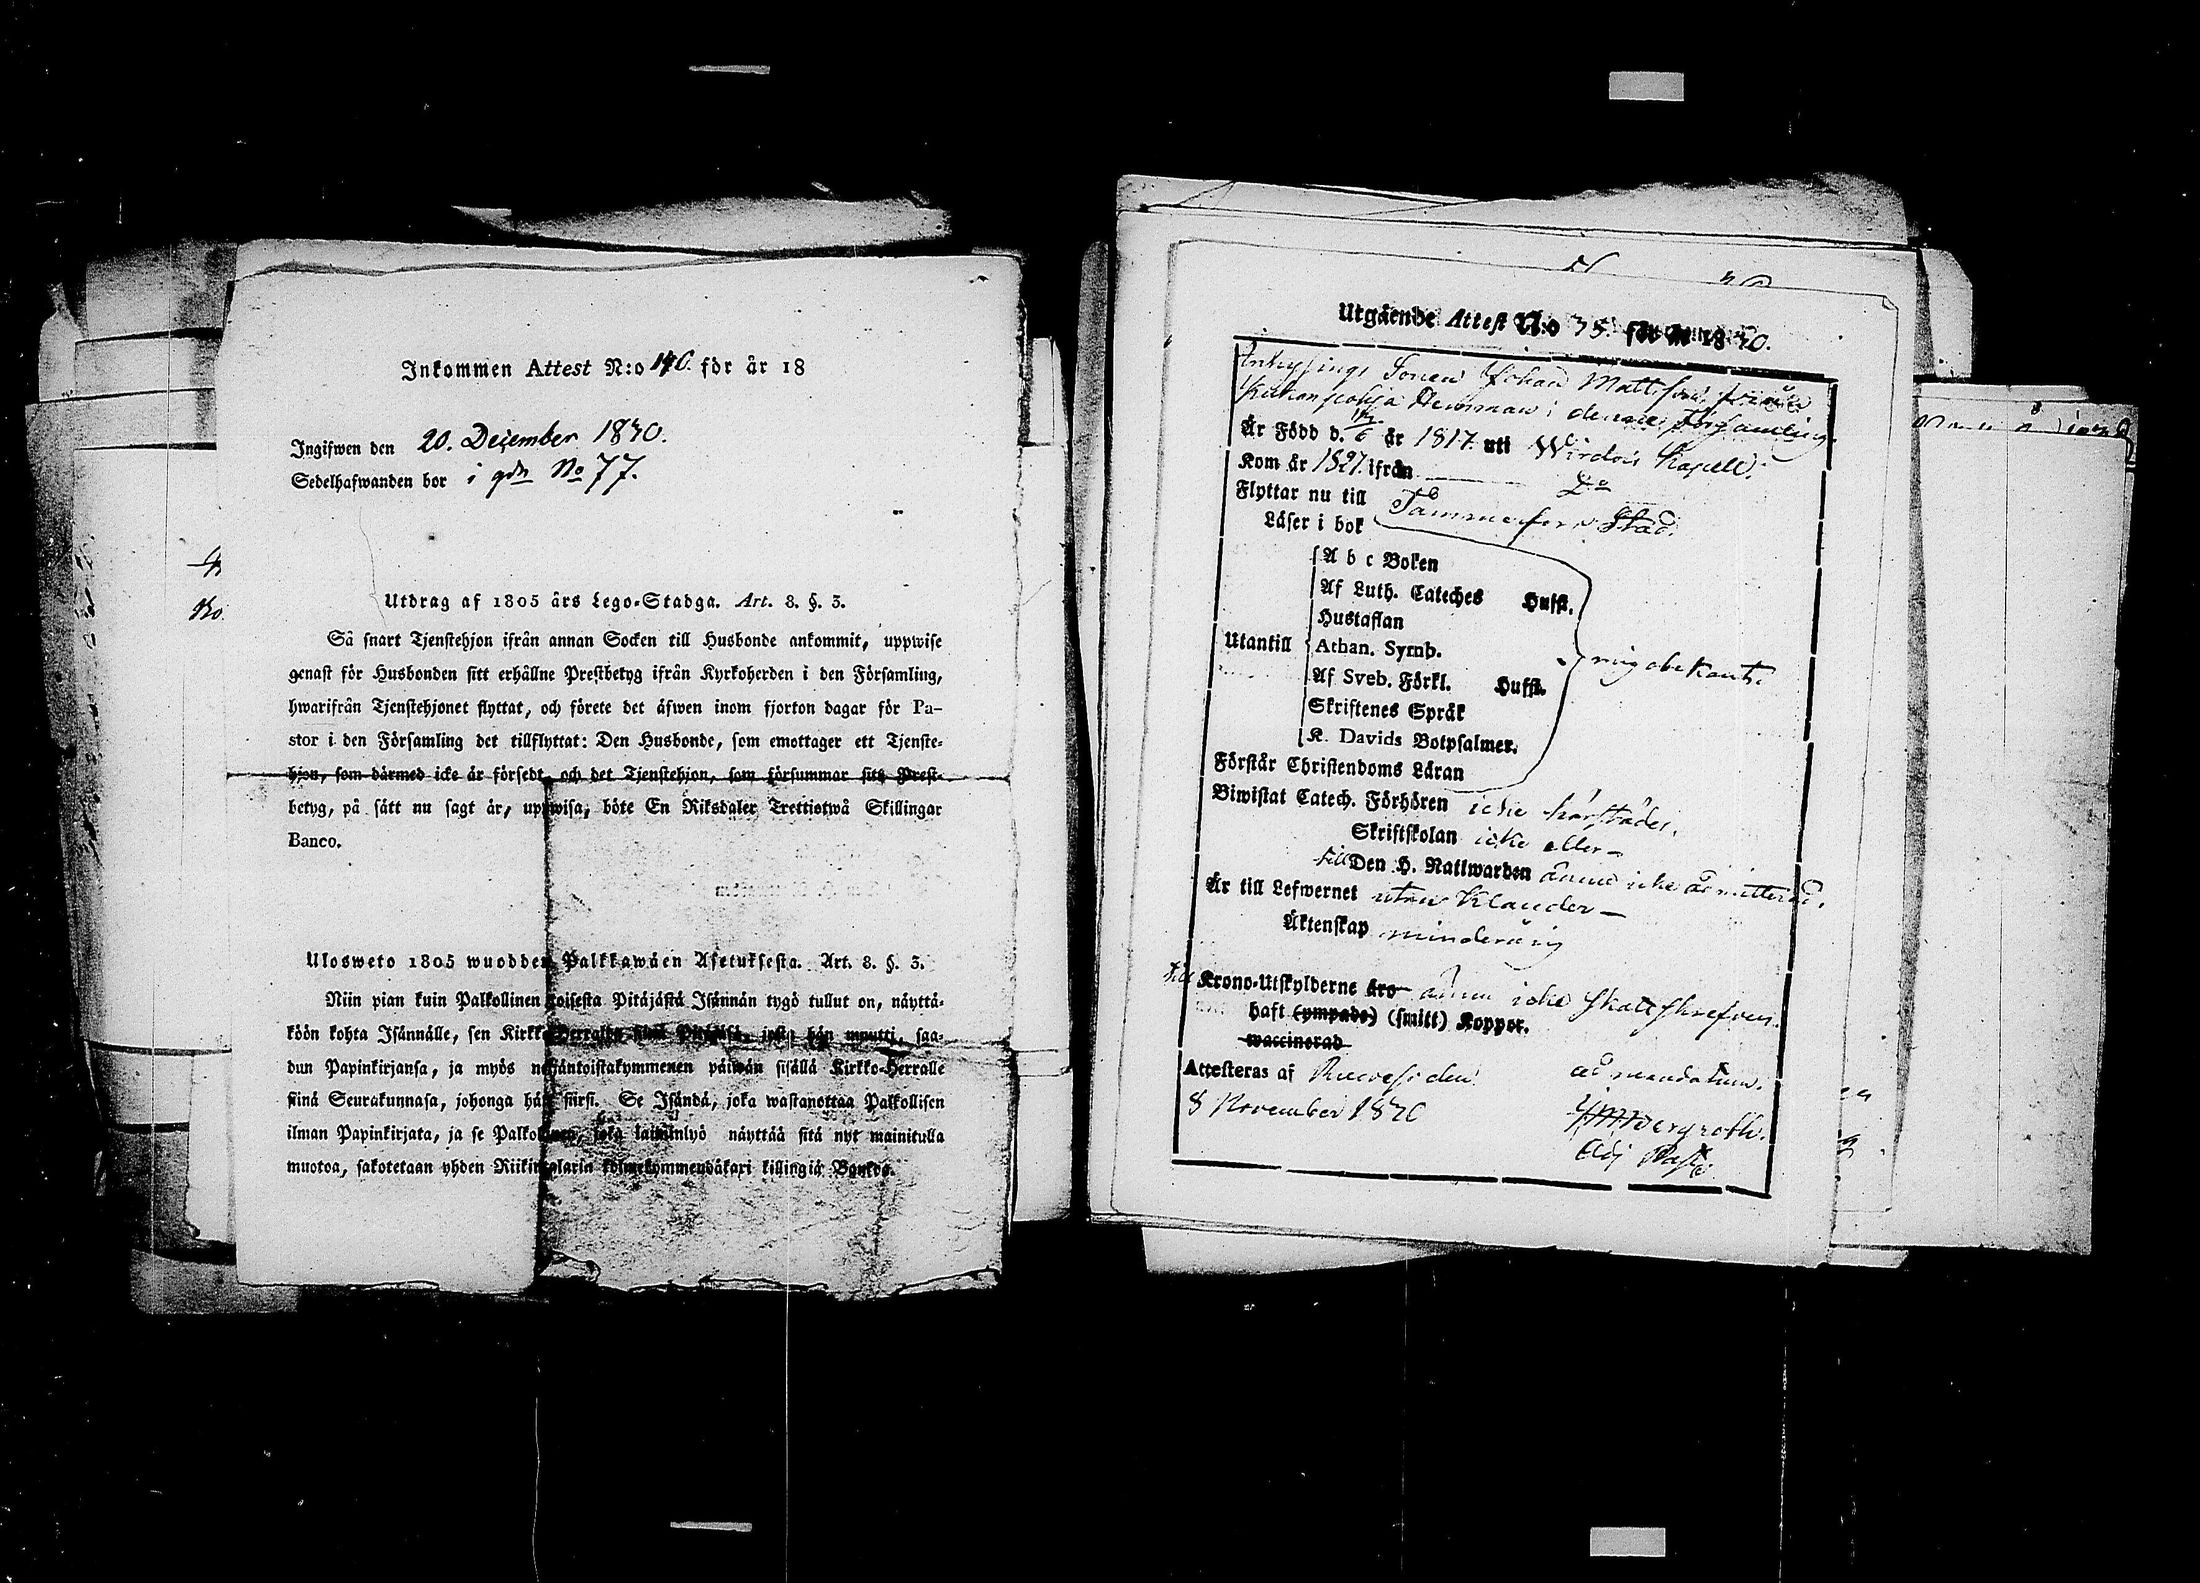 Inkommen Attest N:o 140. för år 18
Ingifwen den 20. December 1830.
Sedelhafwanden bor i gdn No 77.
Utdrag af 1805 års Lego-Stadga. Art. 8. §. 3.
Så snart Tjenstehjon ifrån annan Socken till Husbonde ankommit, uppwise
genast för Husbonden sitt erhållne Prestbetyg ifrån Kyrkoherden i den Församling,
hwarifrån Tjenstehjonet flyttat, och förete det äfwen inom fjorton dagar för Pa-
stor i den Församling det tillflyttat: Den Husbonde, som emottager ett Tjenste-
hjon, som därmed icke är försedt, och det Tjenstehjon, som försummar sitt Prest-
betyg, på sätt nu sagt är, uppwisa, böte En Riksdaler Trettiotwå Skillingar
Banco.
Ulosweto 1805 wuodden Palkkawäen Asetuksesta. Art. 8. §. 3.
Niin pian kuin Palkollinen toisesta Pitäjästä Isännän tygö tullut on, näyttä-
köön kohta Isännälle, sen Kirkko-Herralta siinä Pitäjäsä, josta hän muutti, saa-
dun Papinkirjansa, ja myös neljäntoistakymmenen päiwän sisällä Kirkko-Herralle
siinä Seurakunnasa, johonga hän siirsi. Se Isändä, joka wastanottaa Palkollisen
ilman Papinkirjata, ja se Palkollinen, joka laiminlyö näyttää sitä nyt mainitulla
muotoa, sakotetaan yhden Riikintalarin kolmekymmendäkaxi killingiä Bankos.
Utgående Attest N:o 75. för år 1830.
Inhysings Sonen Johan Mattsson från
Hemman i denne Församling.
Är Född d. 6 år 1817. uti Wirdois Kapell.
Kom år 1827. ifrån Do
Flyttar nu till Tammerfors Stad.
Läser i bok
A b c Boken
Af Luth. Cateches Husfl.
Hustaflan
Utantill Athan. Symb.
mig obekant.
Af Sveb. Förkl. Husfl.
Skriftenes Språk
K. Davids Botpsalmer.
Förstår Christendoms Läran
Biwistat Catech. Förhören icke härstädes.
Skriftskolan icke eller
till Den H. Nattwarden ännu icke admitterad.
Är till Lefwernet utan Klander
Äktenskap minderårig
till Krono-Utskylderne äro ännu icke skattskrefven.
haft (ympade) (smitt) Koppor.
waccinerad
Attesteras af Ruovesi den ad mandatum.
8 November 1830
Adj Past.